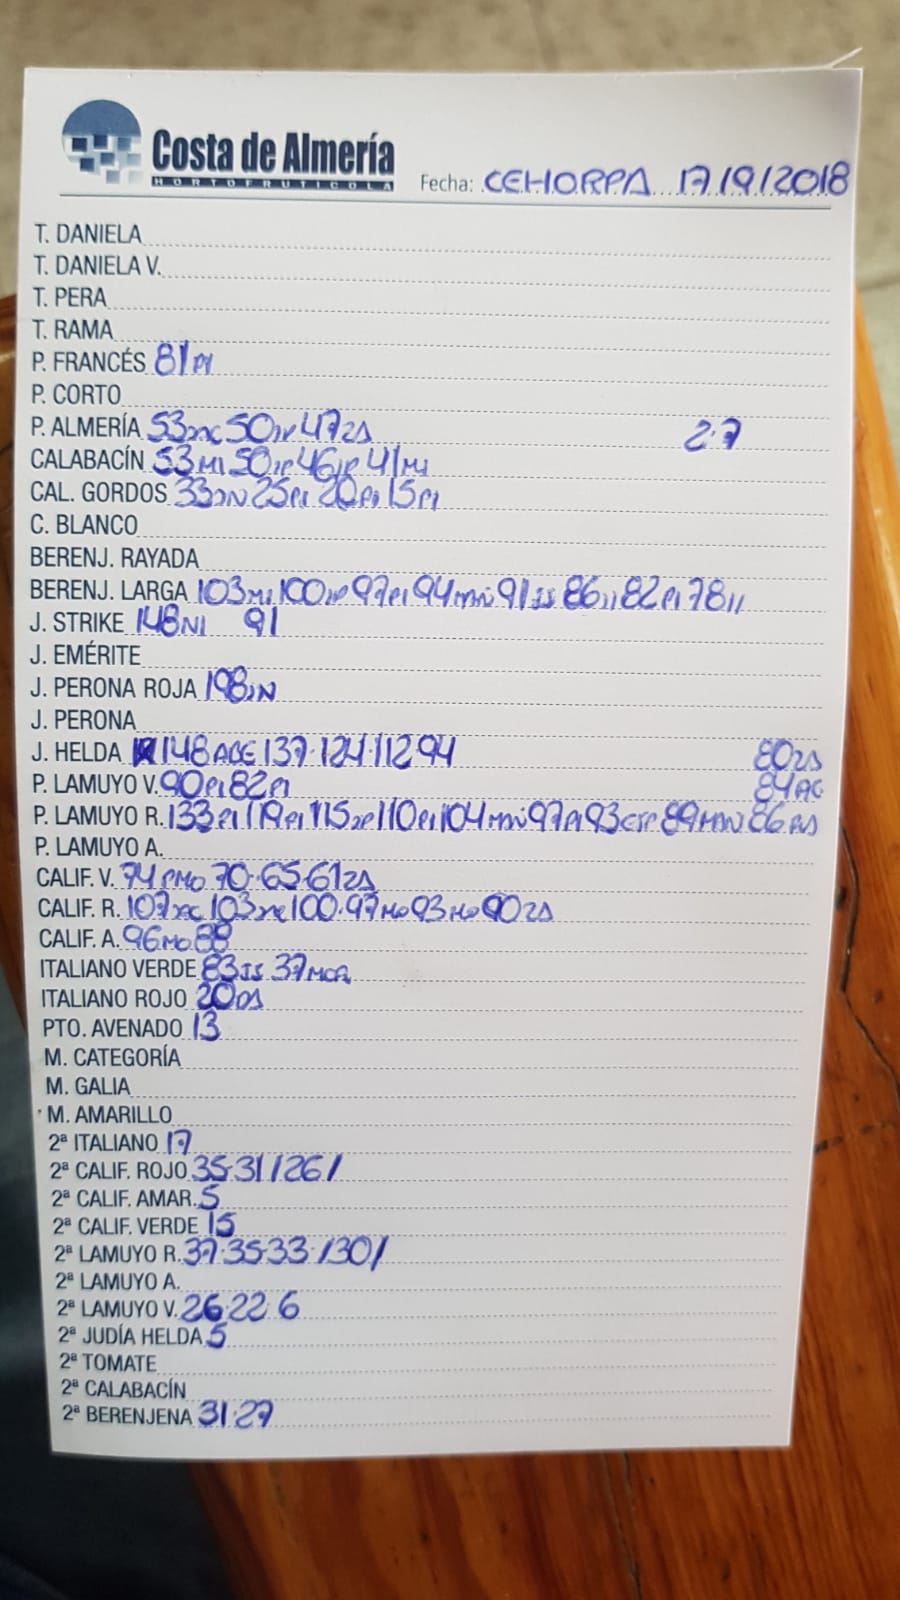 Costa de Almería
HORTOFRUTICOLA
Fecha: CEHORPA 17/9/2018
T. DANIELA
T. DANIELA V.
T. PERA
T. RAMA
P. FRANCÉS 81PI
P. CORTO
P. ALMERÍA 53 50 47ZS 27
CALABACÍN 53MI 50 46 41MI
CAL. GORDOS 33 25PI 20PI 15PI
C. BLANCO
BERENJ. RAYADA
BERENJ. LARGA 103MI 100 97PI 94 91JS 86 82PI 78
J. STRIKE 148NI 91
J. EMÉRITE
J. PERONA ROJA 198JN
J. PERONA
J. HELDA 148 137 124 112 94 80ZS
P. LAMUYO V. 90PI 82PI 84AG
P. LAMUYO R. 133PI 119PI 115 110PI 104 97PI 93 89 86
P. LAMUYO A.
CALIF. V. 74 70 65 61ZS
CALIF. R. 107 103 100 97MO 93MO 90ZS
CALIF. A. 96MO 88
ITALIANO VERDE 83JS 37
ITALIANO ROJO 20DS
PTO. AVENADO 13
M. CATEGORÍA
M. GALIA
M. AMARILLO
2ª ITALIANO 17
2ª CALIF. ROJO 35 31/26/
2ª CALIF. AMAR. 5
2ª CALIF. VERDE 15
2ª LAMUYO R. 37 35 33 /30/
2ª LAMUYO A.
2ª LAMUYO V. 26 22 6
2ª JUDÍA HELDA 5
2ª TOMATE
2ª CALABACÍN
2ª BERENJENA 31 27